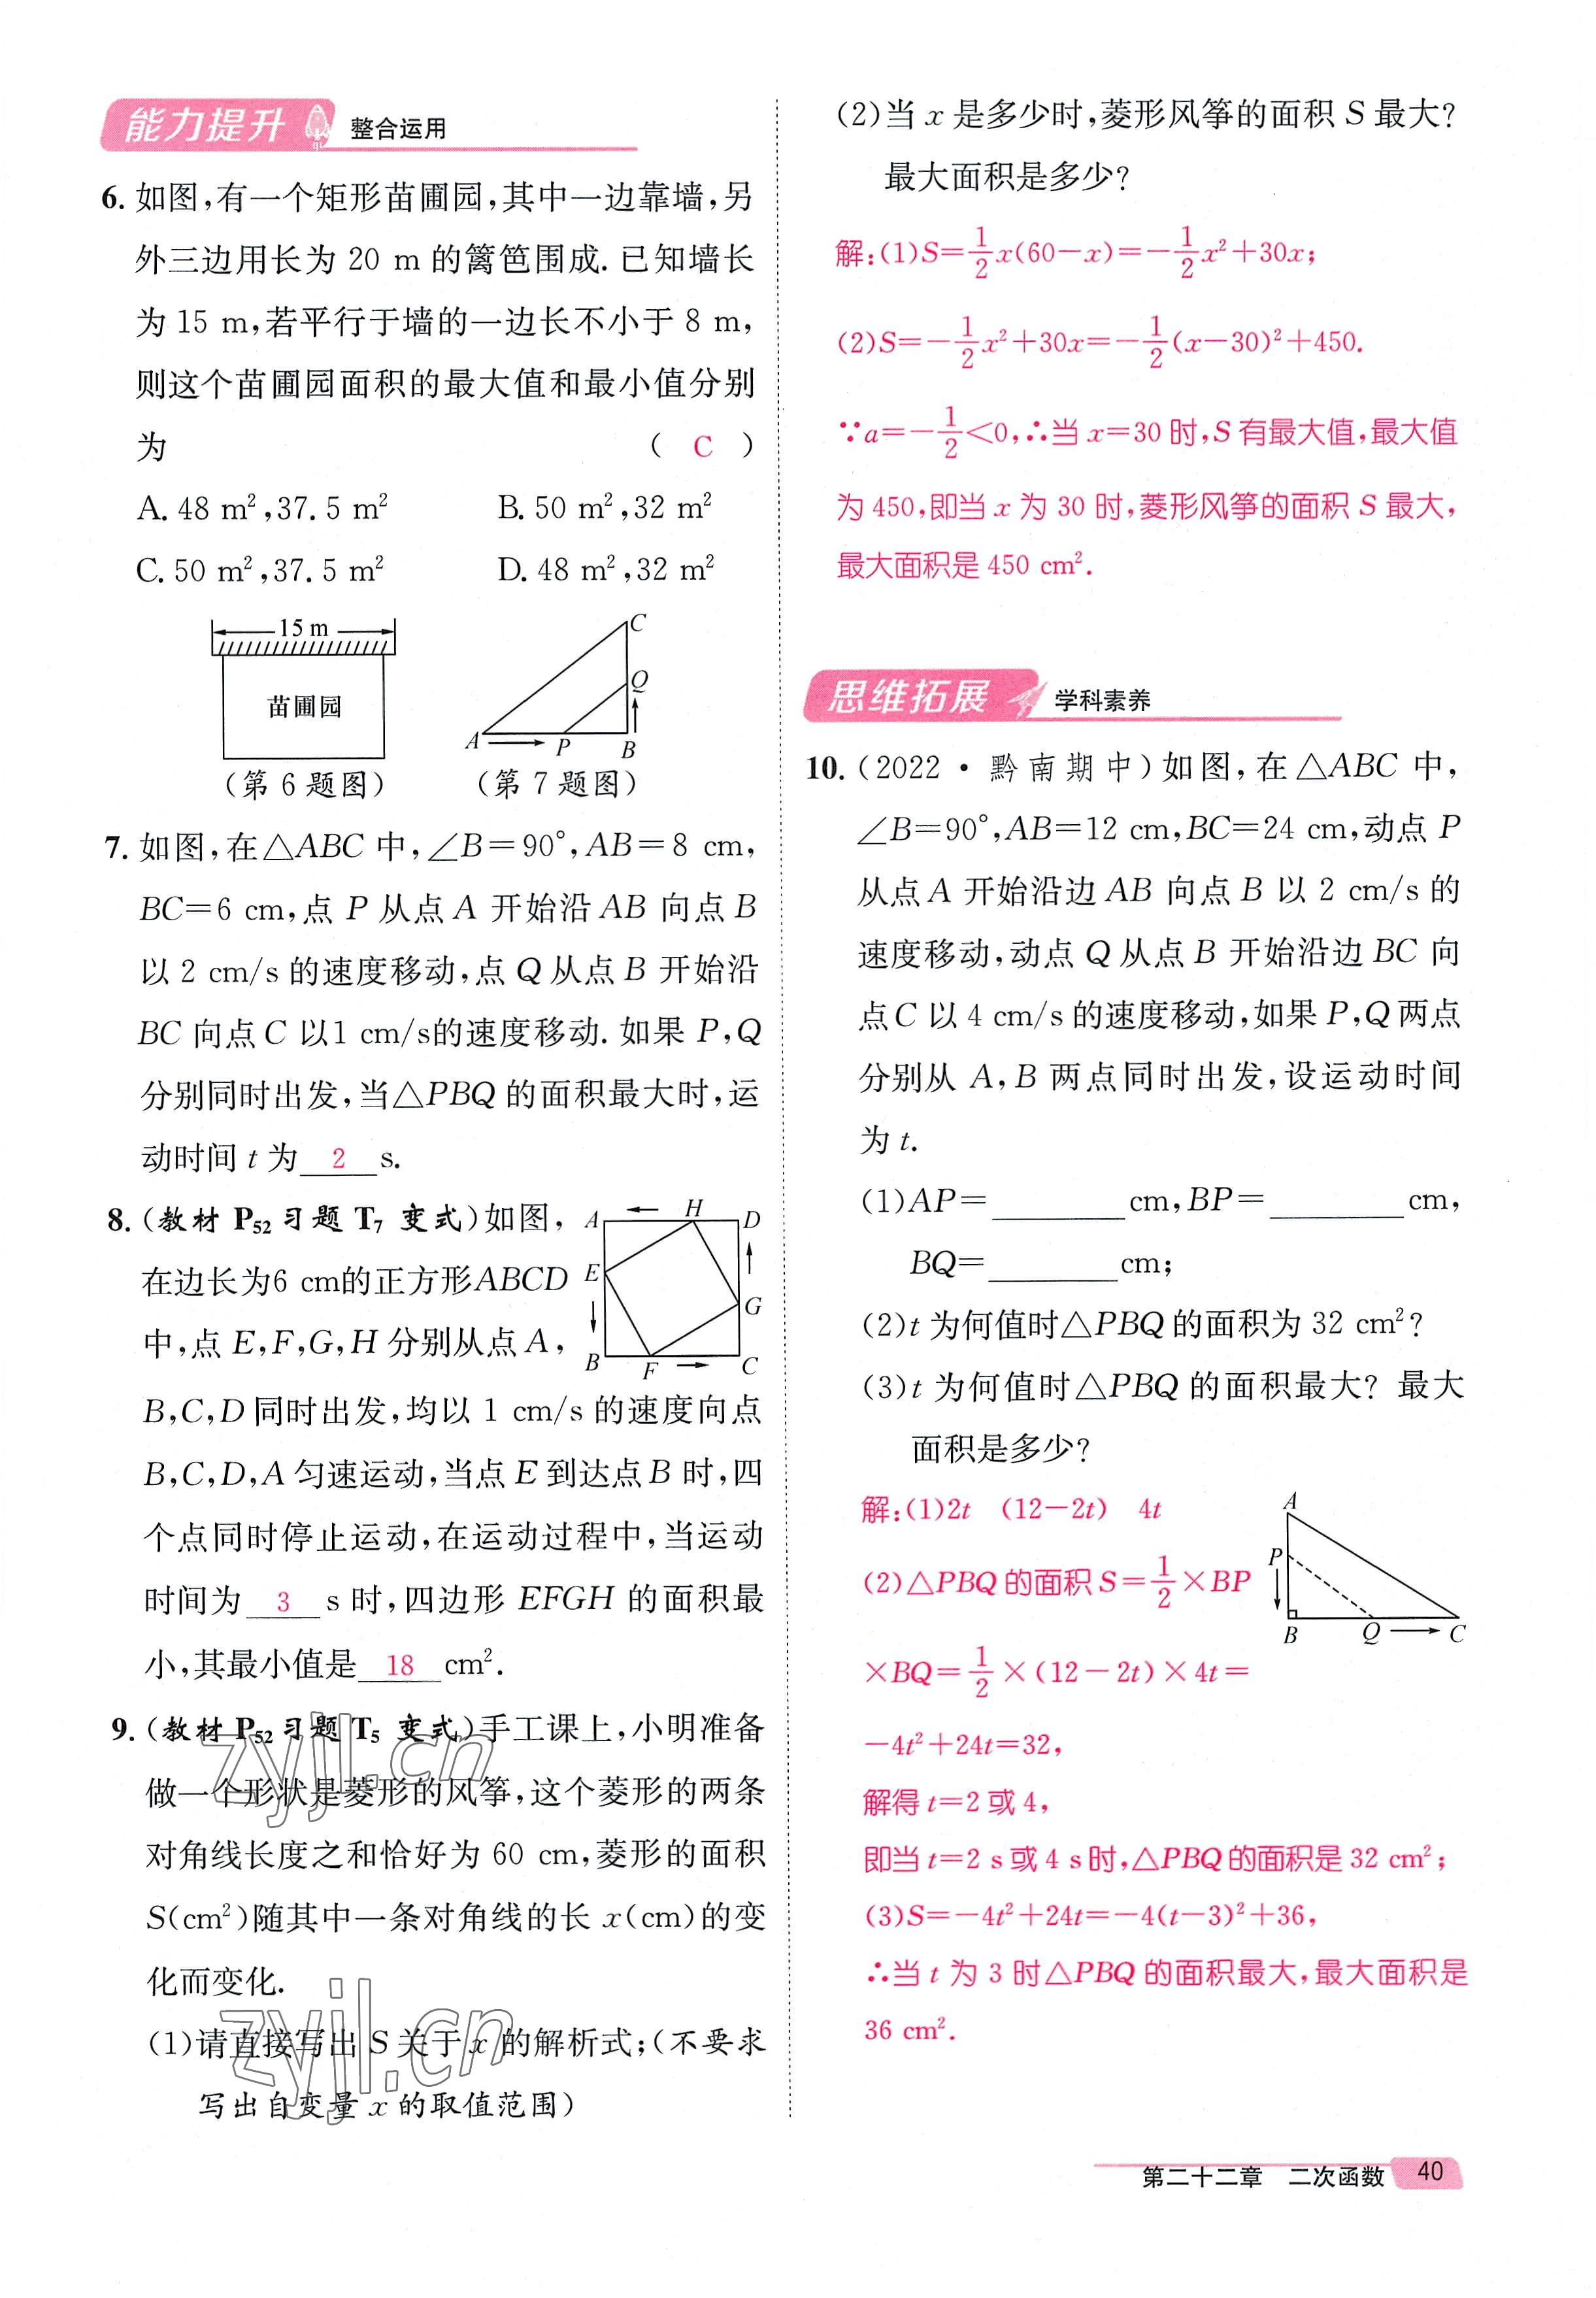 能力提升 整合运用
6. 如图,有一个矩形苗圃园,其中一边靠墙,另
外三边用长为 20 m 的篱笆围成. 已知墙长
为 15 m,若平行于墙的一边长不小于 8 m,
则这个苗圃园面积的最大值和最小值分别
为 ( C )
A. 48 m²,37.5 m² B. 50 m²,32 m²
C. 50 m²,37.5 m² D. 48 m²,32 m²
15 m
苗圃园
C
Q
A P B
(第 6 题图) (第 7 题图)
7. 如图,在△ABC 中,∠B=90°,AB=8 cm,
BC=6 cm,点 P 从点 A 开始沿 AB 向点 B
以 2 cm/s 的速度移动,点 Q 从点 B 开始沿
BC 向点 C 以1 cm/s的速度移动. 如果 P,Q
分别同时出发,当△PBQ 的面积最大时,运
动时间 t 为 2 s.
8. (教材 P₅₂ 习题 T₇ 变式)如图,
在边长为6 cm的正方形ABCD
中,点 E,F,G,H 分别从点 A,
A H D
E
G
B F C
B,C,D 同时出发,均以 1 cm/s 的速度向点
B,C,D,A 匀速运动,当点 E 到达点 B 时,四
个点同时停止运动,在运动过程中,当运动
时间为 3 s 时,四边形 EFGH 的面积最
小,其最小值是 18 cm².
9. (教材 P₅₂ 习题 T₅ 变式)手工课上,小明准备
做一个形状是菱形的风筝,这个菱形的两条
对角线长度之和恰好为 60 cm,菱形的面积
S(cm²)随其中一条对角线的长 x(cm)的变
化而变化.
(1)请直接写出 S 关于 x 的解析式;(不要求
写出自变量 x 的取值范围)
zyjl.cn
zyjl.cn
(2)当 x 是多少时,菱形风筝的面积 S 最大?
最大面积是多少?
解:(1)S=1/2x(60-x)=-1/2x²+30x;
(2)S=-1/2x²+30x=-1/2(x-30)²+450.
∵a=-1/2<0,∴当 x=30 时,S 有最大值,最大值
为 450,即当 x 为 30 时,菱形风筝的面积 S 最大,
最大面积是 450 cm².
思维拓展 学科素养
10. (2022·黔南期中)如图,在△ABC 中,
∠B=90°,AB=12 cm,BC=24 cm,动点 P
从点 A 开始沿边 AB 向点 B 以 2 cm/s 的
速度移动,动点 Q 从点 B 开始沿边 BC 向
点 C 以 4 cm/s 的速度移动,如果 P,Q 两点
分别从 A,B 两点同时出发,设运动时间
为 t.
(1)AP=________cm,BP=________cm,
BQ=________cm;
(2)t 为何值时△PBQ 的面积为 32 cm²?
(3)t 为何值时△PBQ 的面积最大? 最大
面积是多少?
解:(1)2t (12-2t) 4t
(2)△PBQ 的面积 S=1/2×BP
×BQ=1/2×(12-2t)×4t=
-4t²+24t=32,
A
P
B Q C
解得 t=2 或 4,
即当 t=2 s 或 4 s 时,△PBQ 的面积是 32 cm²;
(3)S=-4t²+24t=-4(t-3)²+36,
∴当 t 为 3 时△PBQ 的面积最大,最大面积是
36 cm².
第二十二章 二次函数 40